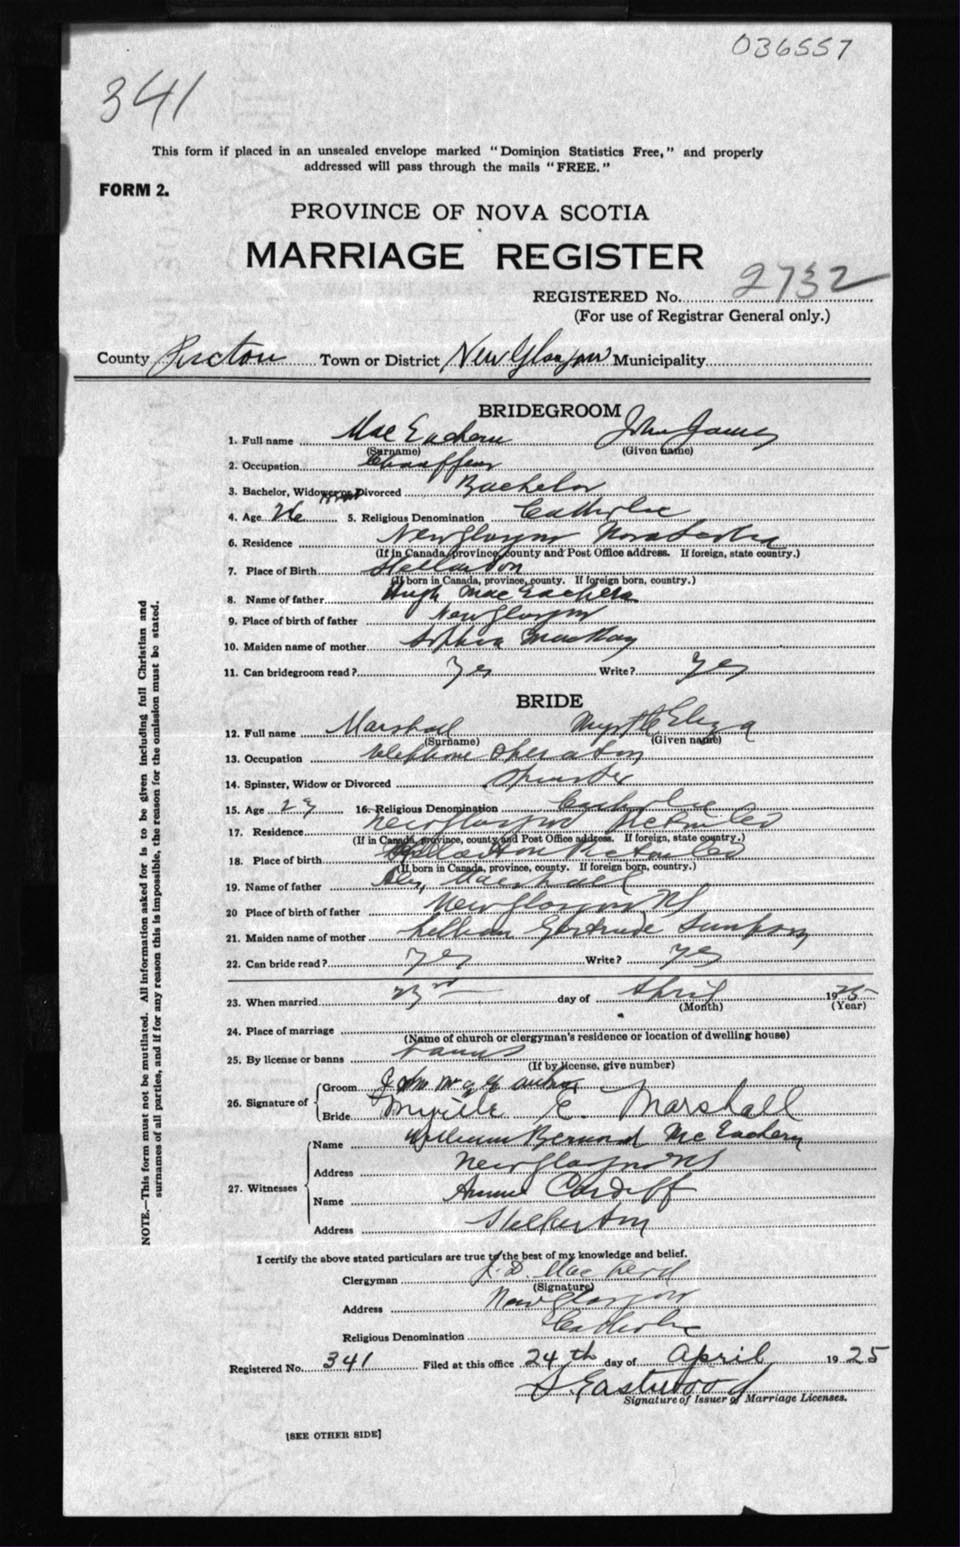 036557
341
This form if placed in an unsealed envelope marked "Dominion Statistics Free," and properly
addressed will pass through the mails "FREE."
FORM 2.
PROVINCE OF NOVA SCOTIA
MARRIAGE REGISTER
REGISTERED No. 2732
(For use of Registrar General only.)
County Pictou Town or District New Glasgow Municipality
BRIDEGROOM
1. Full name Mac Eachern John James
(Surname) (Given name)
2. Occupation Chauffeur
3. Bachelor, Widower or Divorced Bachelor
4. Age 26 5. Religious Denomination Catholic
6. Residence New Glasgow Nova Scotia
(If in Canada, province, county and Post Office address. If foreign, state country.)
7. Place of Birth Stellarton
(If born in Canada, province, county. If foreign born, country.)
8. Name of father Hugh Mac Eachern
9. Place of birth of father New Glasgow
10. Maiden name of mother Sophia MacKay
11. Can bridegroom read? Yes Write? Yes
BRIDE
12. Full name Marshall Myrtle Eliza
(Surname) (Given name)
13. Occupation telephone operator
14. Spinster, Widow or Divorced Spinster
15. Age 16. Religious Denomination Catholic
17. Residence New Glasgow Pictou Co
(If in Canada, province, county and Post Office address. If foreign, state country.)
18. Place of birth Stellarton Pictou Co
(If born in Canada, province, county. If foreign born, country.)
19. Name of father Alex, Marshall
20 Place of birth of father New Glasgow NS
21. Maiden name of mother Lillian Gertrude Simpson
22. Can bride read? Yes Write? Yes
23. When married 23rd day of April 1925
(Month) (Year)
24. Place of marriage
(Name of church or clergyman's residence or location of dwelling house)
25. By license or banns banns
(If by license, give number)
26. Signature of Groom John
Bride Myrtle E. Marshall
27. Witnesses Name William Bernard McEachern
Address New Glasgow NS
Name Annie Cardiff
Address Stellarton
I certify the above stated particulars are true to the best of my knowledge and belief.
Clergyman J. D. MacLeod
(Signature)
Address New Glasgow
Religious Denomination Catholic
Registered No. 341 Filed at this office 24th day of April 1925
S. Eastwood
Signature of Issuer of Marriage Licenses.
[SEE OTHER SIDE]
NOTE.—This form must not be mutilated. All information asked for is to be given including full Christian and
surnames of all parties, and if for any reason this is impossible, the reason for the omission must be stated.